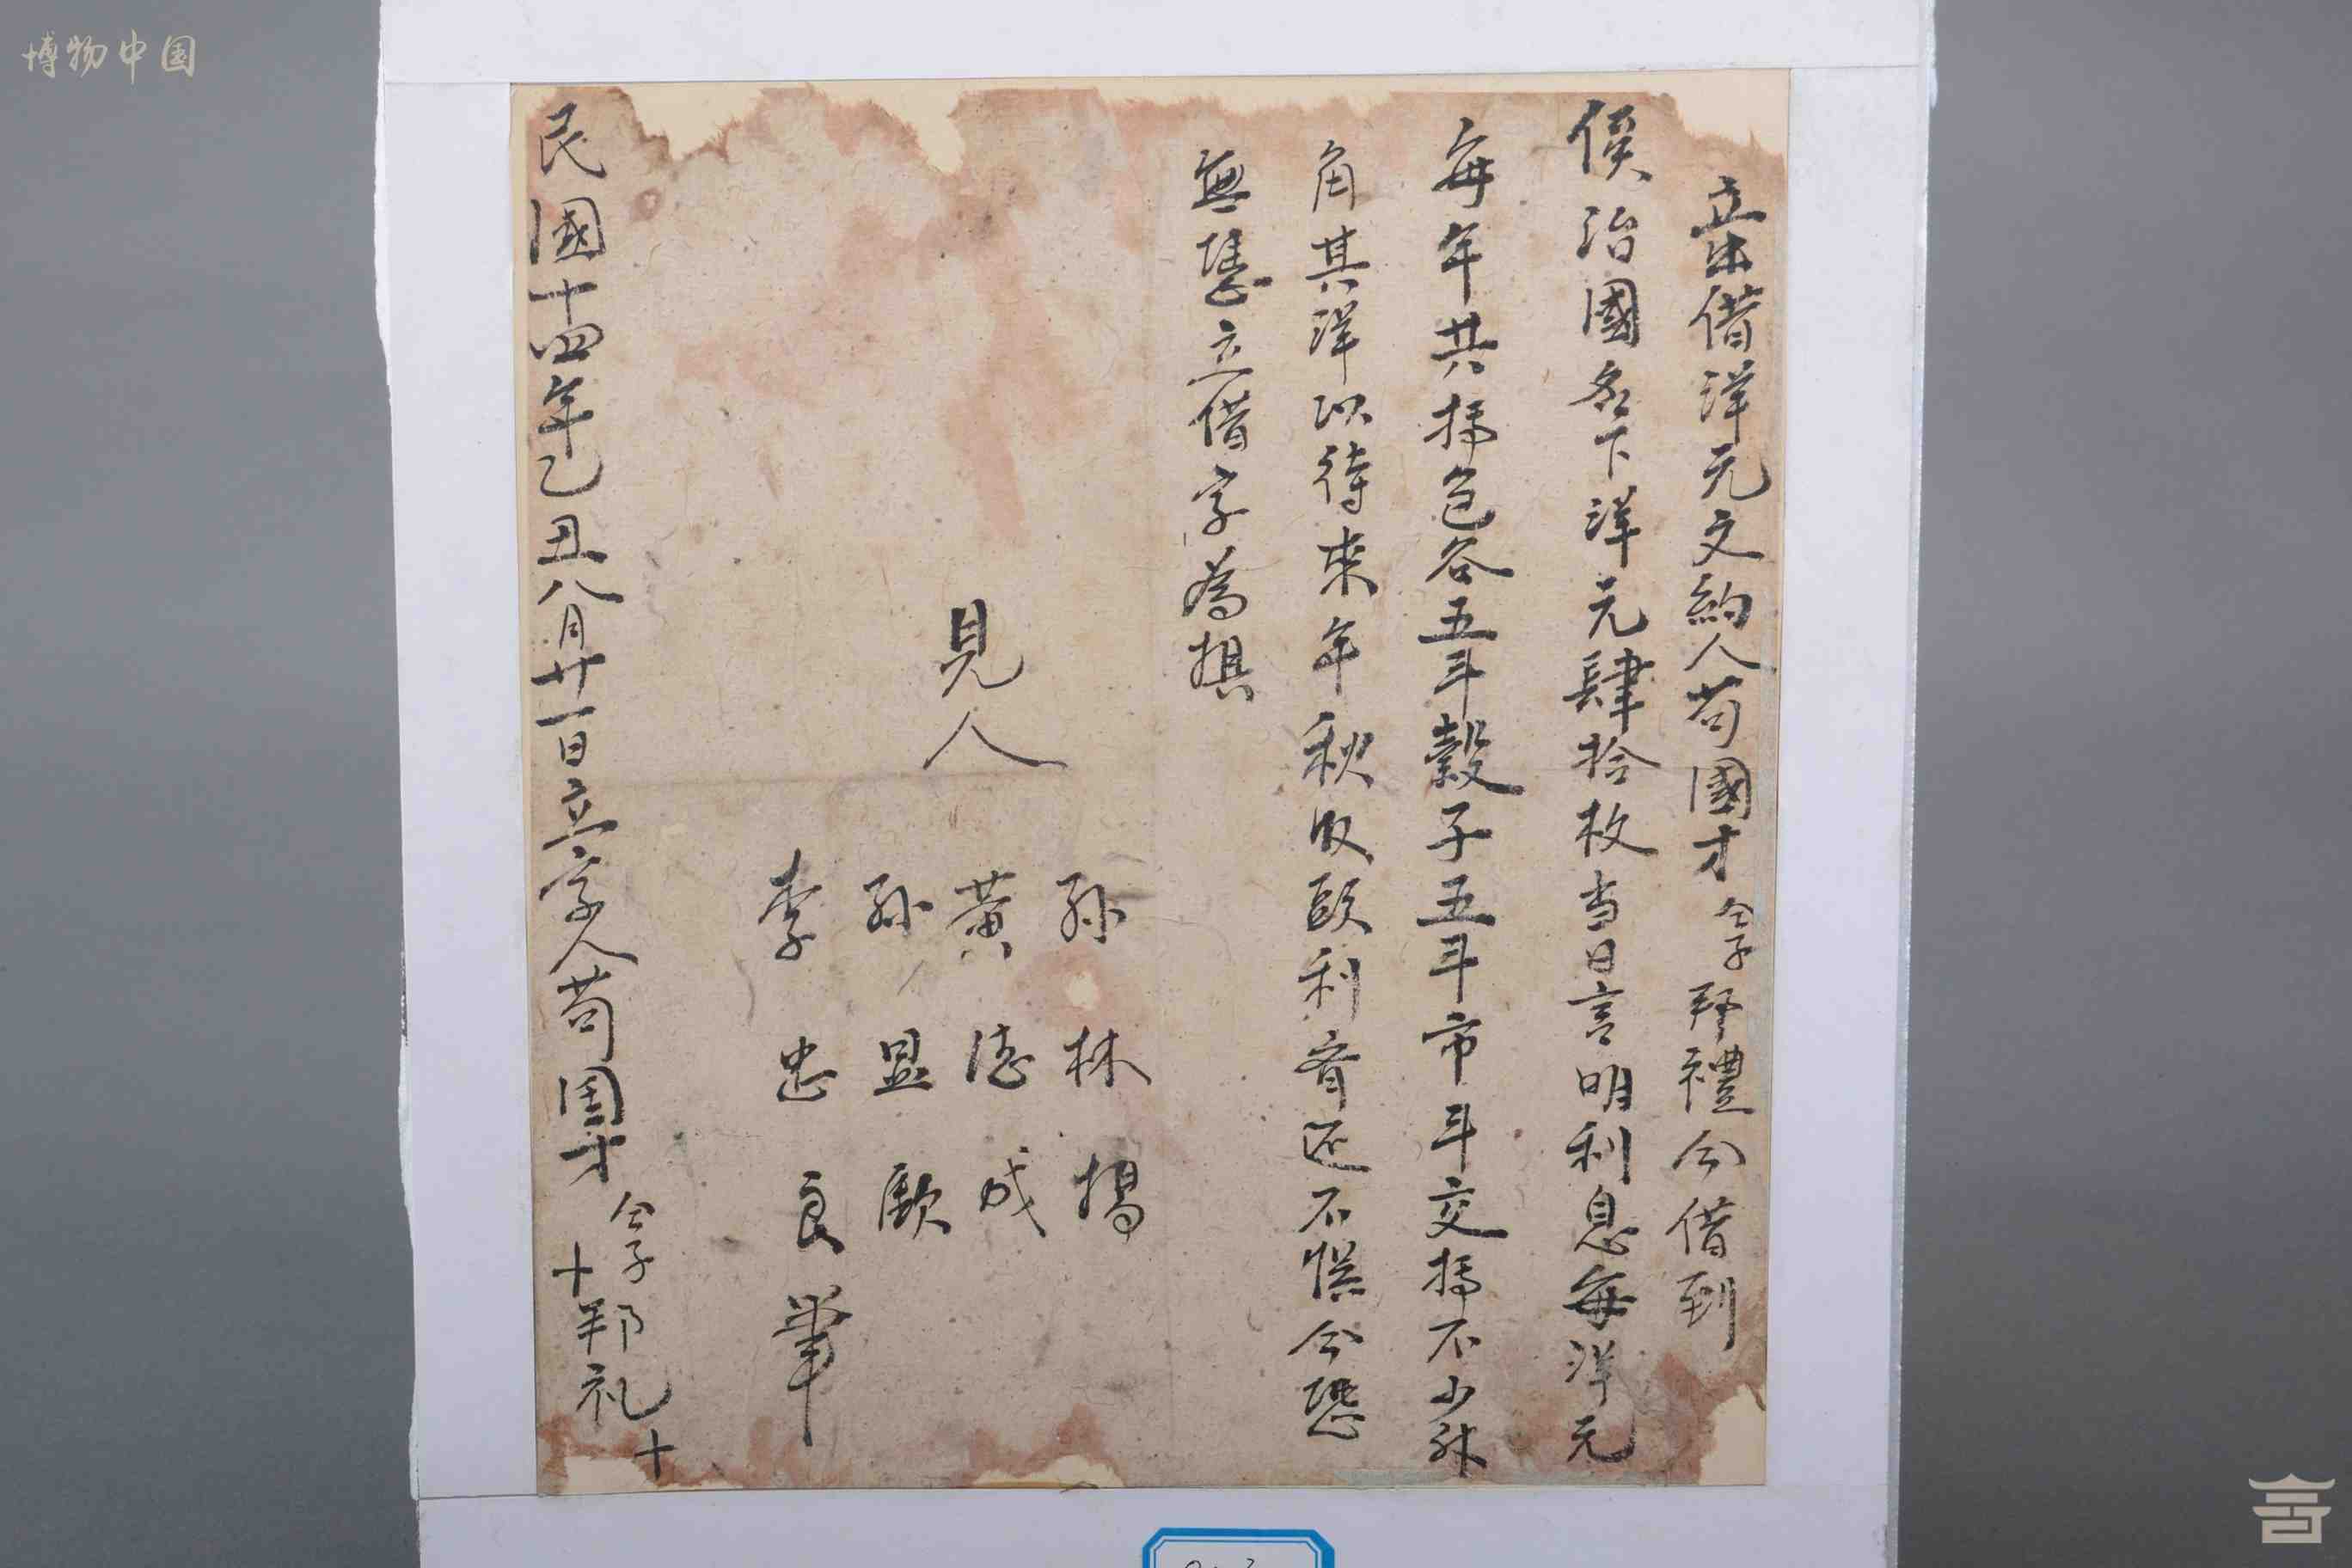 博物中国
立出借洋元文約人苟國才仝子邦禮今借到
侯治國名下洋元肆拾枚当日言明利息每洋元
每年共担色谷五斗穀子五斗市斗交担不少升
角其洋以待来年秋收頭利齊還不悞今恐
無憑立借字為據
見人
孫林揚
黃德成
孫显
李忠良筆
民國十四年乙丑八月廿一日立字人苟国才十仝子邦礼十